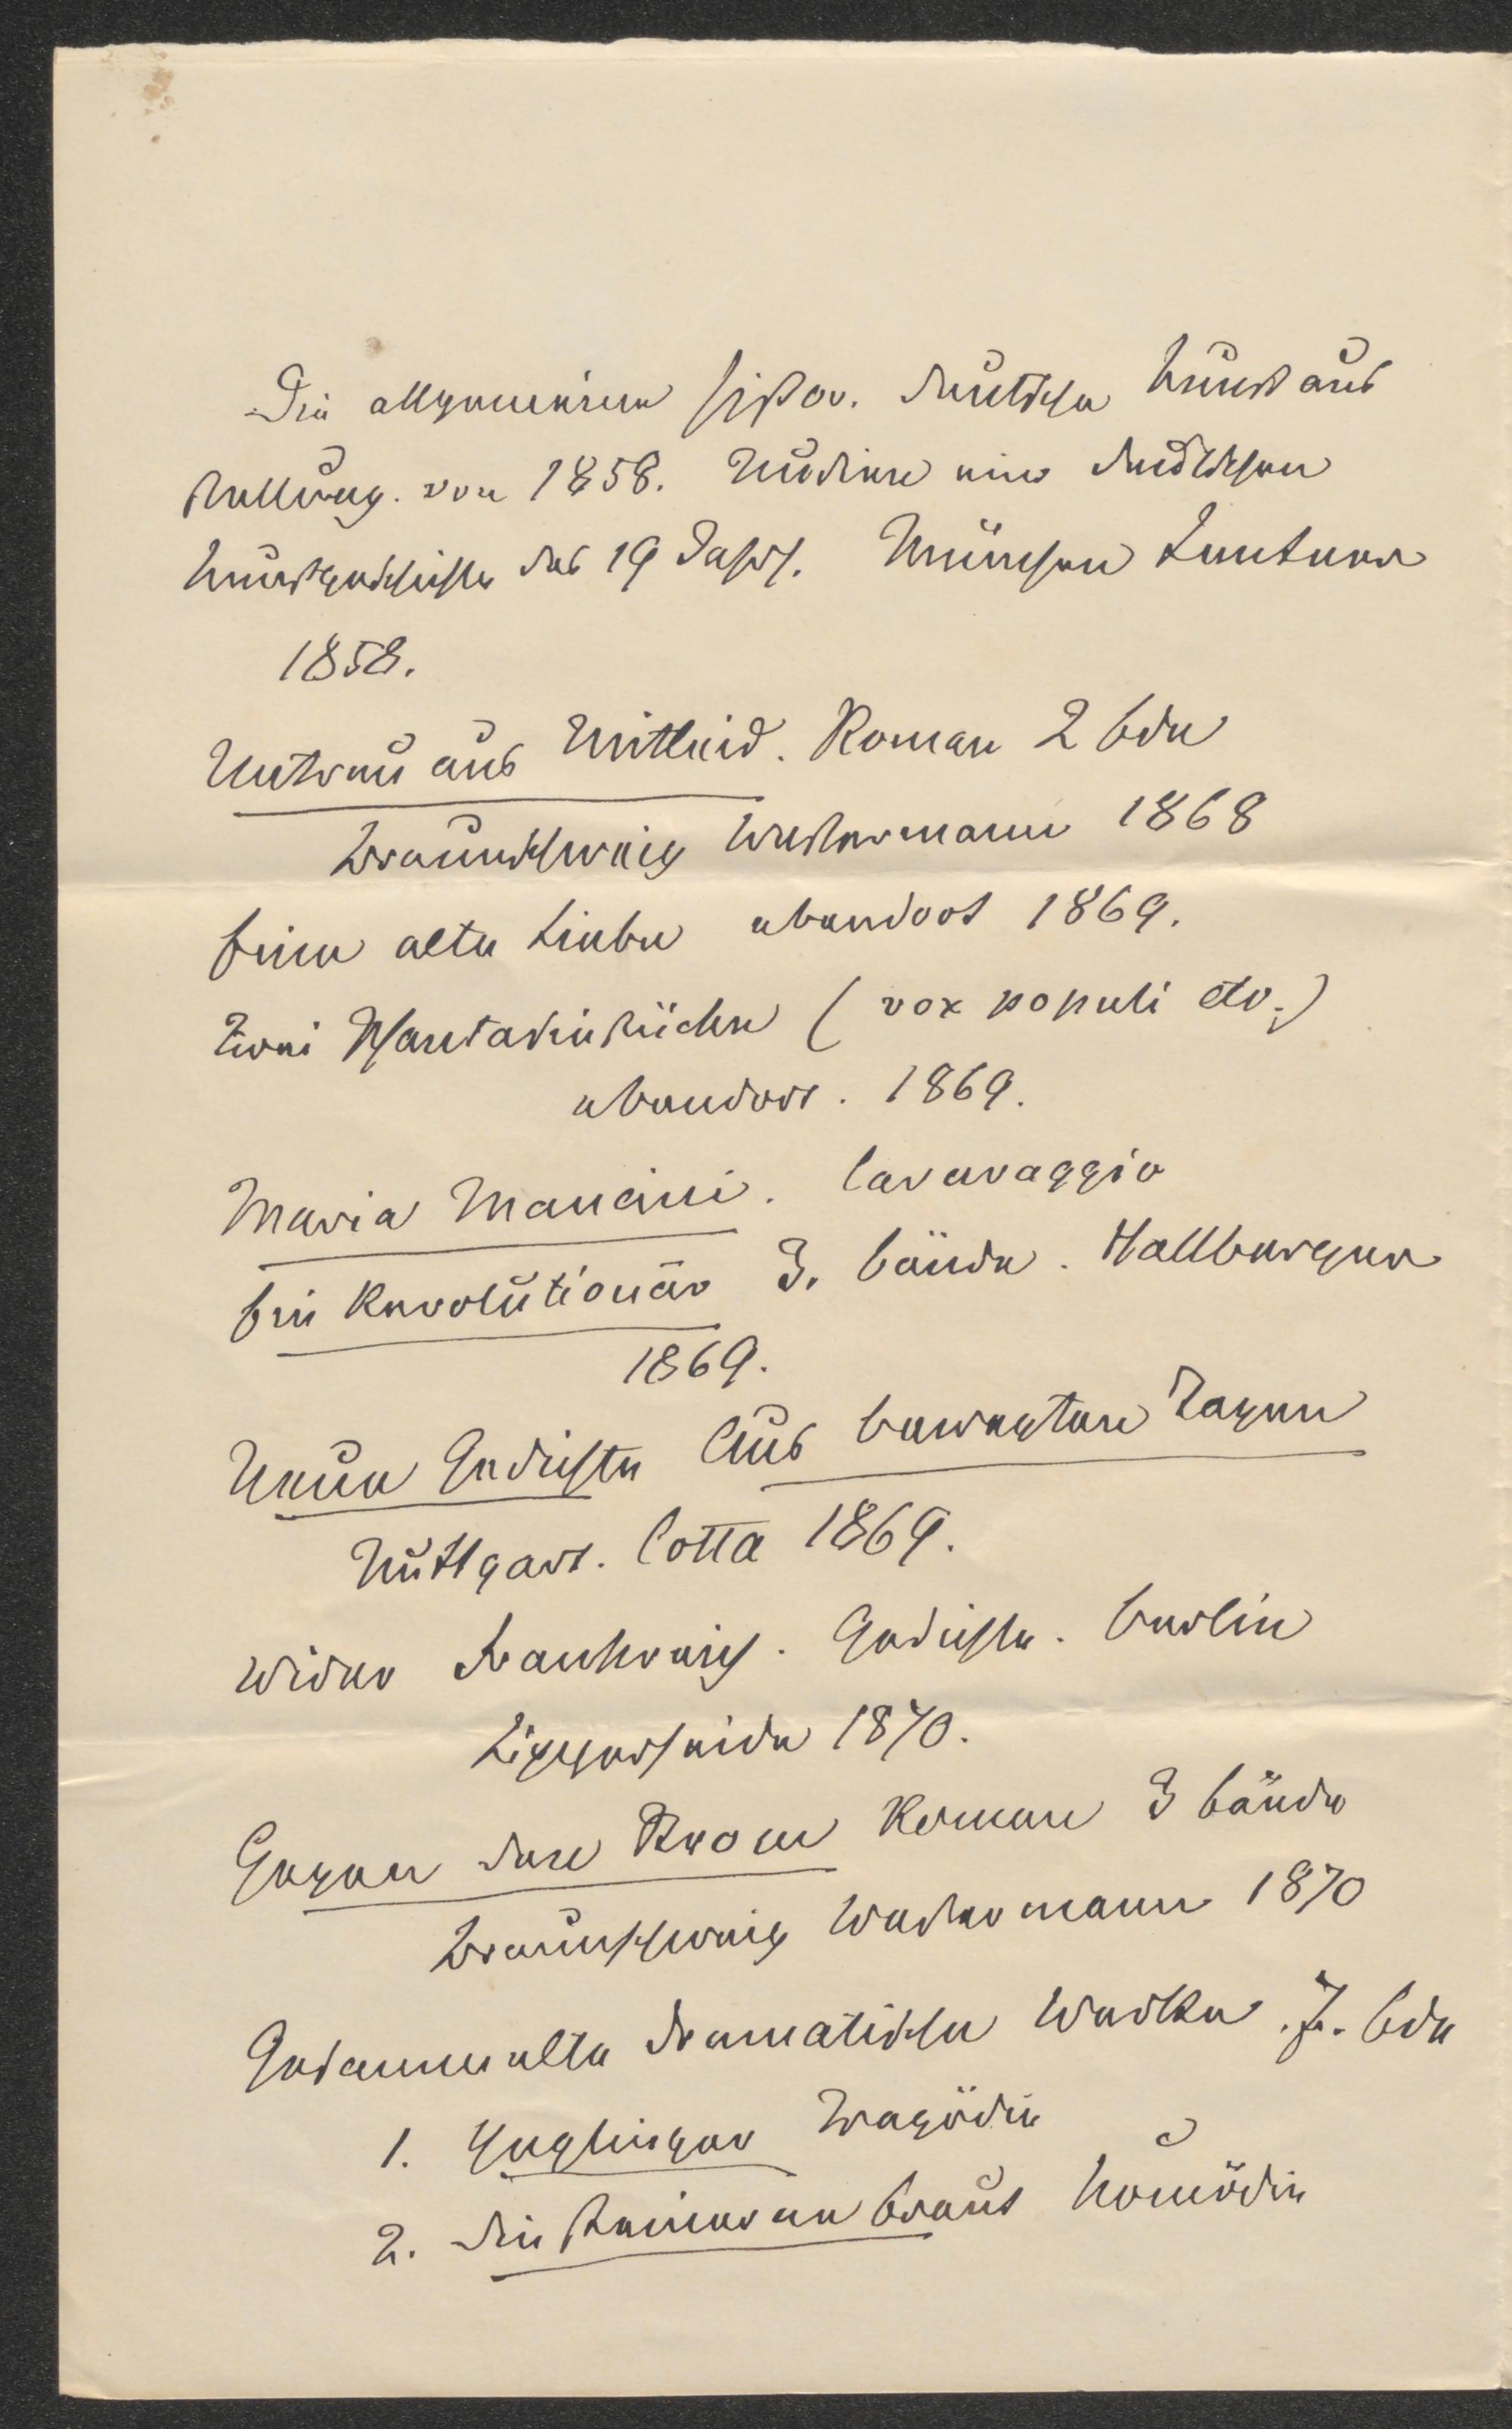 Die allgemeine histor. deutsche Kunstaus
stellung. von 1858. Studien einer deutschen
Kunstgeschichte des 19 Jahrh. München Lentner
1858.
Untreu aus Mitleid. Roman 2 Bde
Braunschweig Westermann 1868
Eine alte Liebe ebendort 1869.
Zwei Phantasiestücke (vox populi etc.)
ebendort. 1869.
Maria Mancini. Caravaggio
Ein Revolutionär 3. Bände. Hallberger
1869.
Neue Gedichte Aus bewegten Tagen
Stuttgart. Cotta 1869.
Wider Frankreich. Gedichte. Berlin
Lipperheide 1870.
Gegen den Strom Roman 3 Bände
Braunschweig Westermann 1870
Gesammelte dramatische Werke. 7. Bde
1. Hyglinger Tragödie
2. Die steinerne Braut Komödie